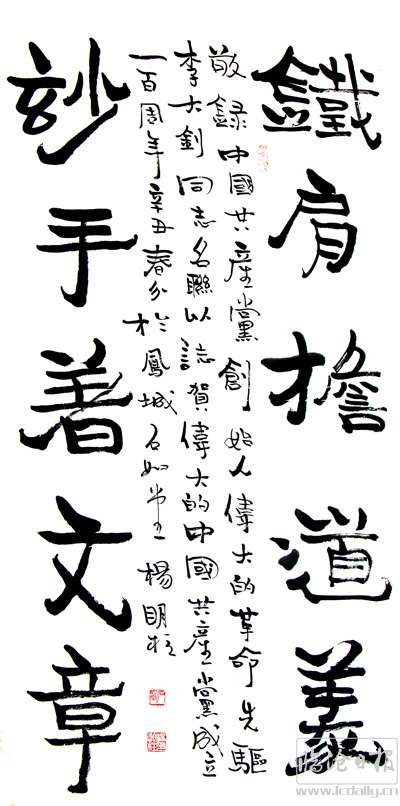 鐵肩擔道義
敬錄中國共產黨創始人偉大的革命先驅
李大釗同志名聯以誌賀偉大的中國共產黨成立
一百周年辛丑春分於鳳城 楊明柱
玅手著文章
聊城日报
www.lcdaily.cn